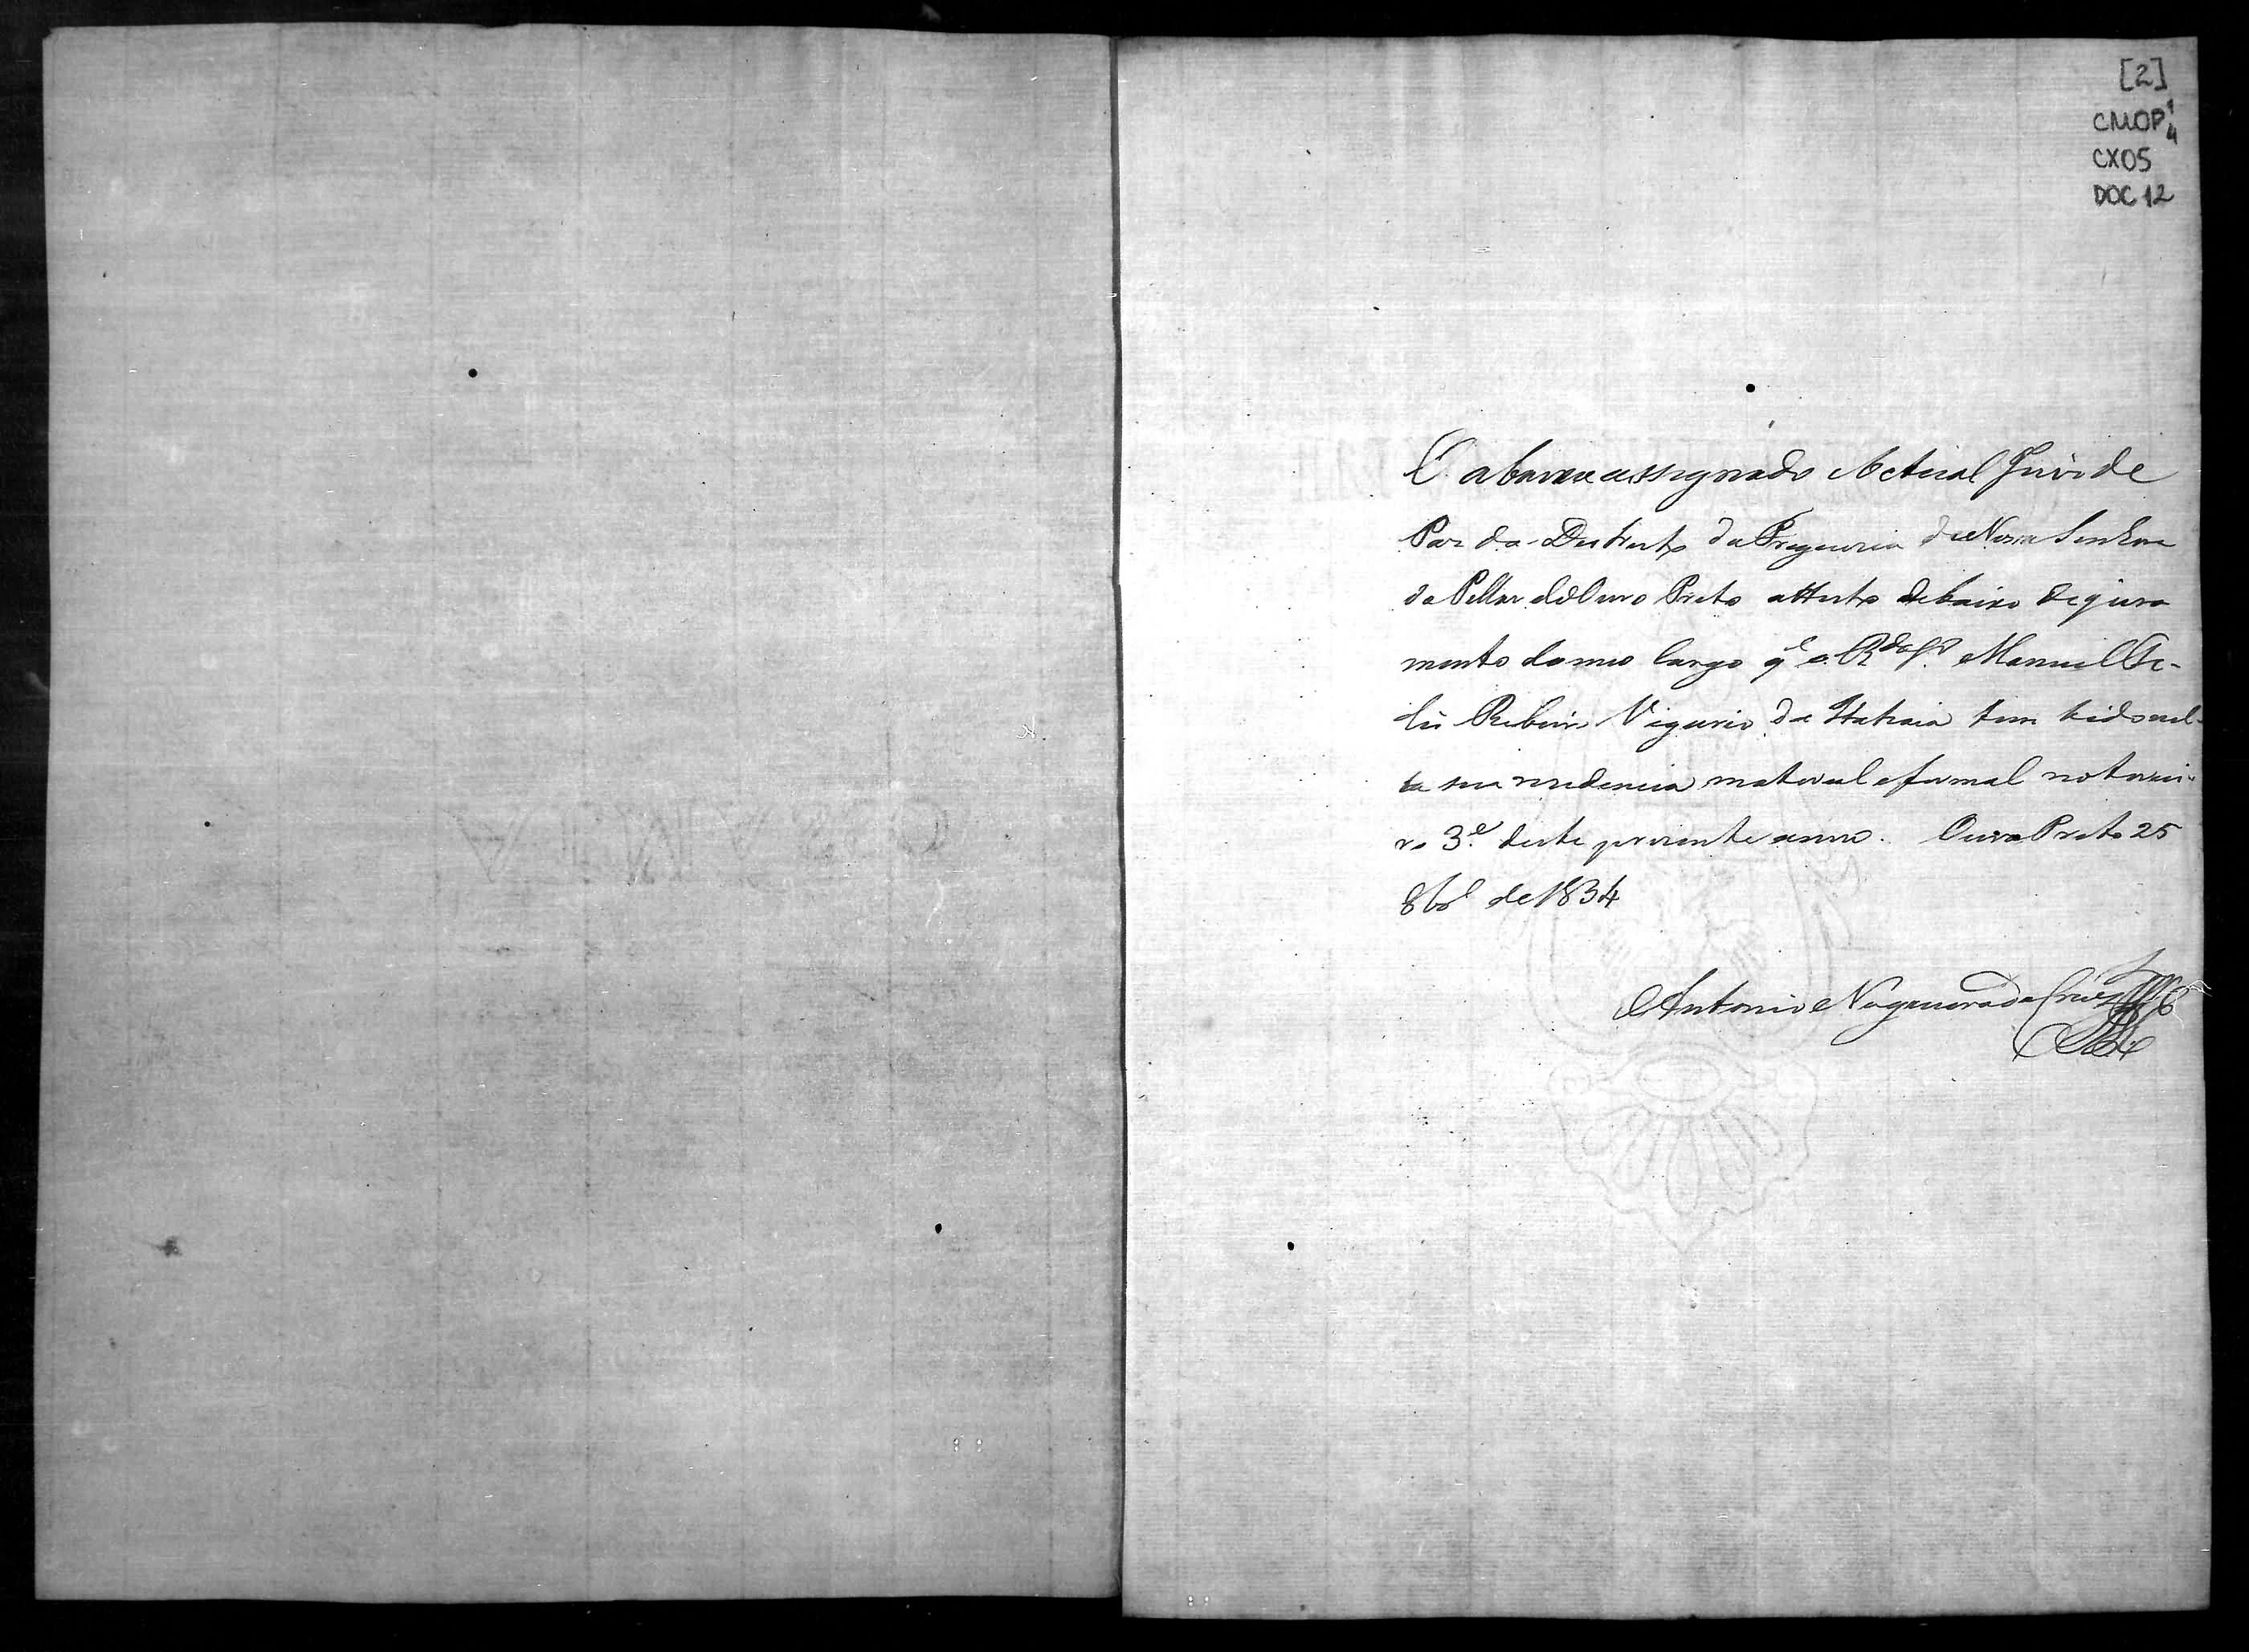 [2]
CMOP 1/4
CX05
DOC 12
O abaixo assignado Actual Juis de
Pas do Destricto da Freguesia de Nossa Senhora
do Pillar do Ouro Preto attesto debaixo de jura
mento do meo Cargo q.e o R.do Manuel
Ribeiro Vigario da Itatiaia tem tido nel-
la sua residencia material e formal no tercei-
ro 3.e deste presente anno. Ouro Preto 25
8br.o de 1834
Antonio Nogueira da Cruz